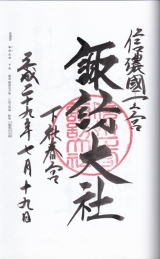 信濃國一之宮
諏訪大社
下社春宮
平成二十九年七月十九日